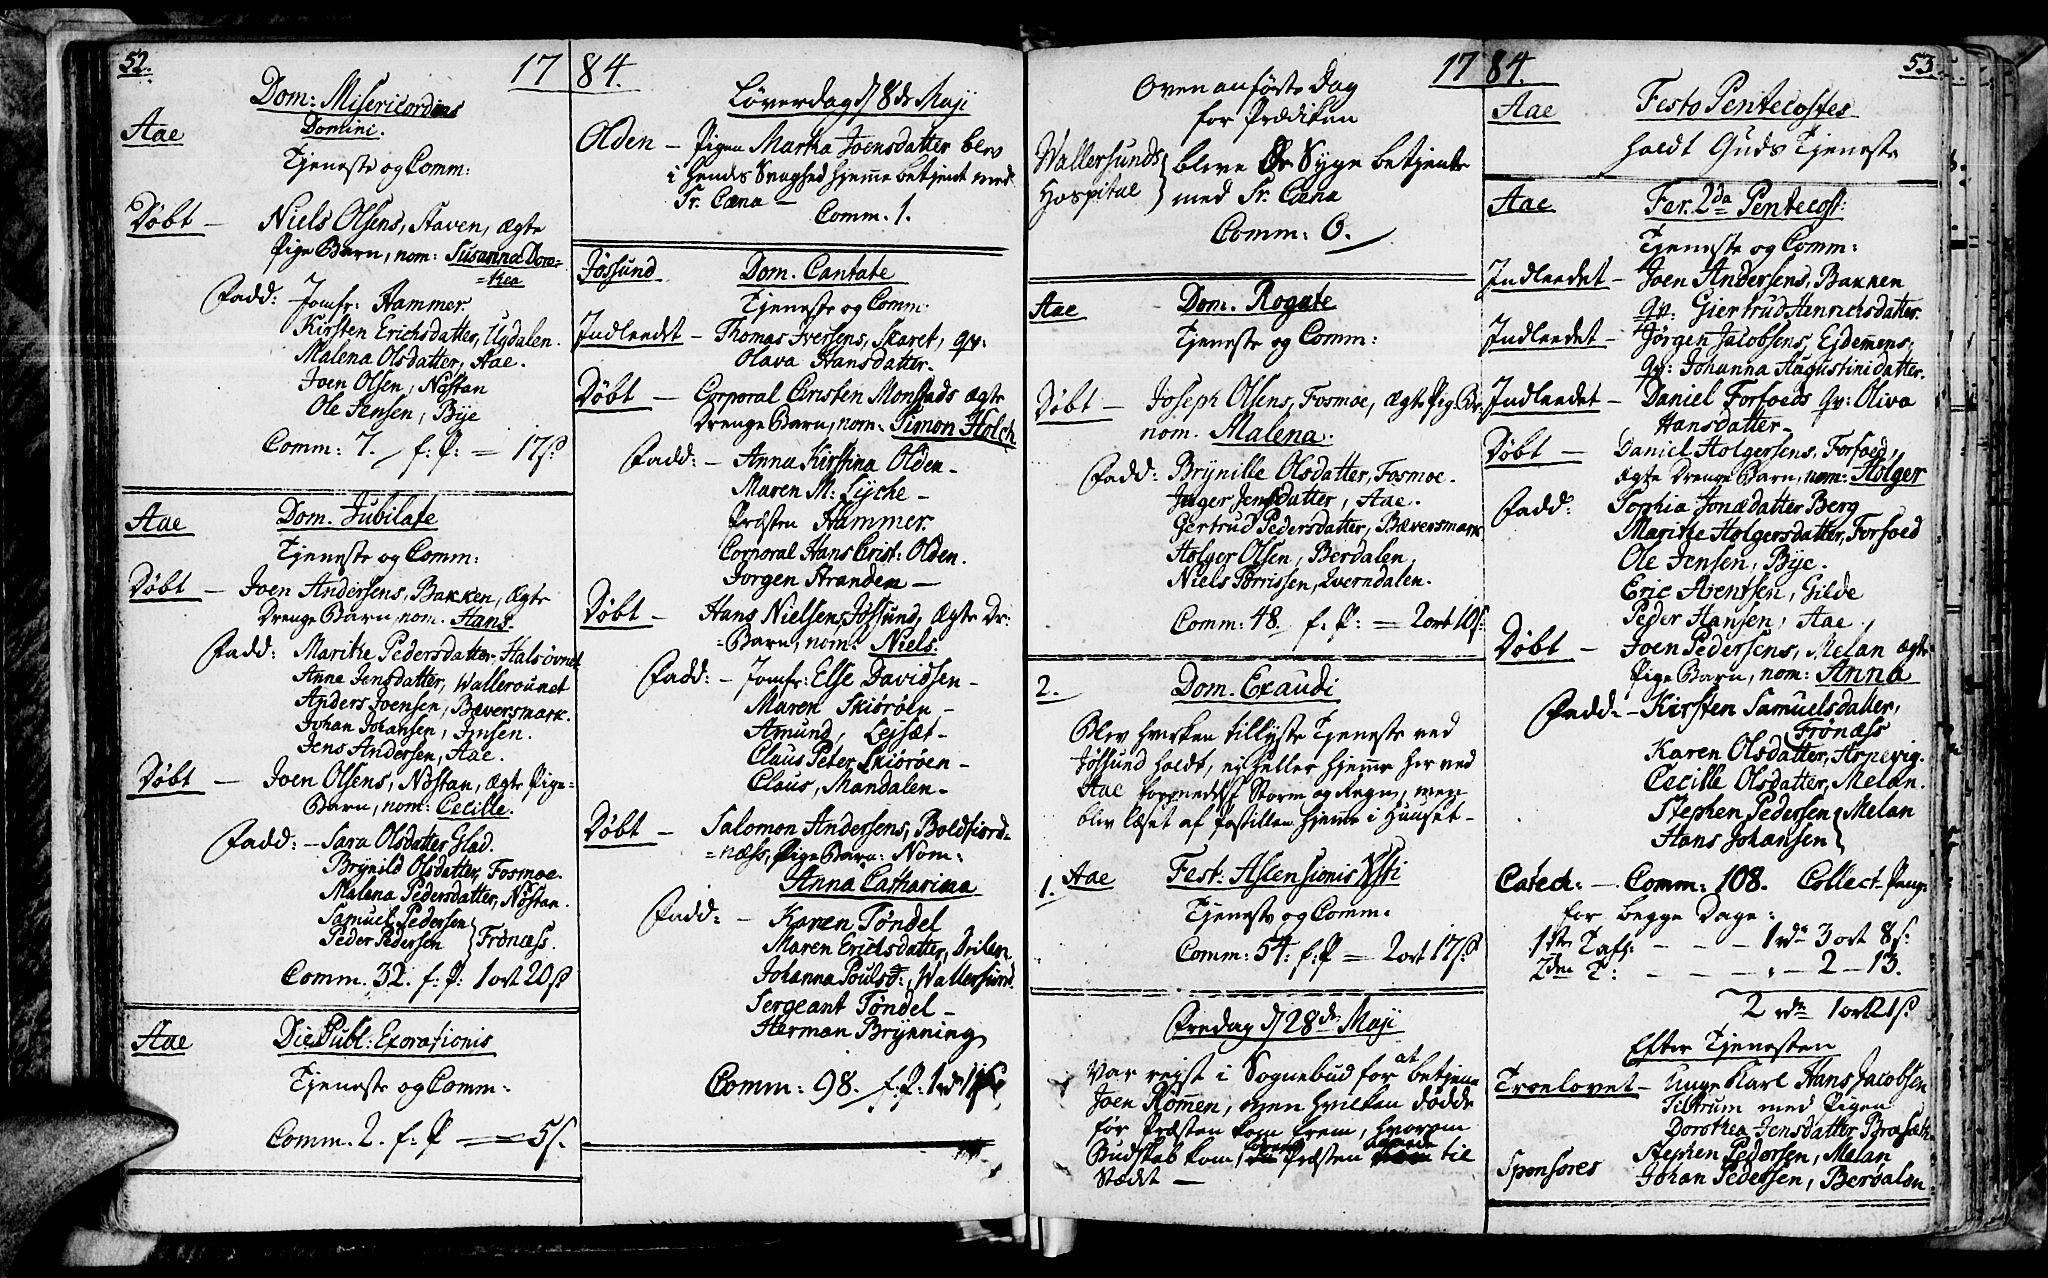 52.
17 84.
Dom: Misericordias
Domini.
Aae
Tjeneste og Comm:
Døbt — Niels Olsens, Staven, ægte
Pige Barn, nom: Susanna Doro=
=thea
Fadd: Jomfr: Hammer
Kirsten Erichsdatter, Ugdalen.
Malena Olsdatter, Aae.
Joen Olsen, Nøstan
Ole Jensen, Bÿe
Comm: 7. f: P: = 17 s
Aae Dom. Jubilate
Tjeneste og Comm:
Døbt — Joen Andersens, Bakken, ægte
Drenge Barn, nom. Hans.
Fadd: Marithe Pedersdatter, Halsøvnet
Anne Jensdatter, Wallersunet
Anders Joensen, Bæversmark.
Johan Johansen,
Jens Andersen, Aae.
Døbt — Joen Olsens, Nøstan, ægte Pige-
Barn, nom: Cecille.
Fadd: — Sara Olsdatter Glad.
Brÿnild Olsdatter, Fosmoe.
Malena Pedersdatter, Nøstan.
Samuel Pedersen
Peder Pedersen } Frønæss.
Comm. 32. f: P: 1 ort 20 s
Aae Die Publ: Exorationis
Tjeneste og Comm:
Comm. 2. f: P == 5 s.
Løverdag d 8de Maji
Olden — Pigen Martha Joensdatter blev
i hendes Svaghed hjemme betjent med
Sr. Cæna —
Comm. 1.
Jøssund Dom. Cantate
Tjeneste og Comm:
Indleedet — Thomas Iversens, Skaret, qv:
Olava Hansdatter.
Døbt — Corporal Christen Monstads ægte
Drenge Barn, nom. Simon Holch
Fadd: — Anna Kirstina Olden —
Maren M: Lÿche —
Præsten Hammer.
Corporal Hans Crist: Olden.
Jorgen Strandem —
Døbt — Hans Nielsens, Jøssund, ægte Dr:
Barn, nom: Niels.
Fadd: — Jomfr: Else Davidsen —
Maren Skiørøen —
Amund, Lejsæt —
Claus Peter Skiørøen —
Claus, Mandalen —
Døbt — Salomon Andersens, Boldfiord=
=næss, Pige Barn: Nom:
Anna Catharina
Fadd: — Karen Tøndel
Maren Erichsdatter,
Johanna Poulsd:, Wallersund.
Sergeant Tøndel —
Herman Brÿnning
Comm: 98. f. P: 1 rd
17 84.
53
Ovenanførte Dag
for Prædiken
Wallersunds
Hospital } bleve De Syge betjente
med Sr. Cæna
Comm: 6.
Aae Dom. Rogate
Tjeneste og Comm:
Døbt — Joseph Olsens, Fosmoe, ægte Pige Br:
nom. Malena.
Fadd: Brÿnille Olsdatter, Fosmoe.
Inger Jensdatter, Aae.
Gertrud Pedersdatter, Bæversmark
Holger Olsen, Berdalen.
Niels Torrissen, Qverndalen.
Comm: 48. f: P: = 2 ort 10 s.
2. Dom. Exaudi
Blev hverken tillyste Tjeneste ved
Jøssund holdt, ei heller hjemme her ved
Aae formedelst Storm og Regn, men
blev læset af Postillen hjemme i Huuset —
1. Aae Fest: Ascensionis Xsti
Tjeneste og Comm:
Comm: 54: f: P = 2 ort 17 s
Fredag d 28de Maji
Var rejst i Sognebud for at betjene
Joen Rømmen, men hvilken døde
før Præsten kom frem, hvorom
Budskab kom, Præsten til
Stædet —
Aae Festo Pentecostes
holdt Guds Tjeneste
Aae Fer. 2da Pentecost:
Tjeneste og Comm:
Indleedet — Joen Andersens, Bakken
qv: Giertrud Henrichsdatter.
Indleedet — Jørgen Jacobsens, Eidemens,
qv: Johanna Augustini datter.
Indleedet — Daniel Forfoeds qv: Oliva
Hansdatter —
Døbt — Daniel Holgersens, Forfoed,
ægte Drenge Barn, nom: Holger
Fadd: Sophia Jonædatter Berg
Marithe Holgersdatter, Forfoed
Ole Jensen, Bÿe.
Eric Arentsen, Gilde
Peder Hansen, Aae.
Døbt — Joen Pedersens, Melan ægte
Pige Barn, nom: Anna
Fadd: — Kirsten Samuelsdatter,
Frønæss
Karen Olsdatter, Aspevig.
Cecille Olsdatter, Melan.
Stephen Pedersen } Melan
Hans Johansen
Catech: — Comm: 108. Collect-Penge
for begge Dage:
1ste Tafl: — — — 1 rdr 3 ort 8 s.
2den T: — — — " — 2 — 13.
2 rdr 1 ort 21 s
Efter Tjenesten
Troelovet — Unge Karl Hans Jacobsen
Tiltrum med Pigen
Dorothea Jensdatter
Sponsores Stephen Pedersen, Melan
Johan Pedersen, Berdalen